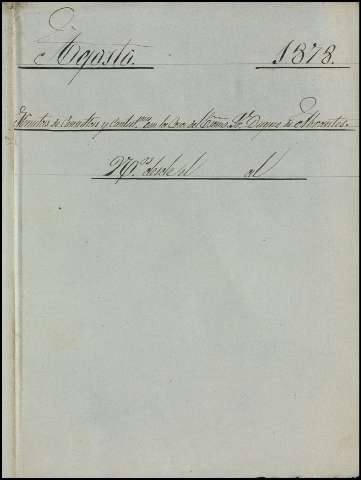 Agosto. 1878.
Minutas de Consultas y Contest.nes con la Casa del Excmo. Sr. Duque de Abrantes.
desde el al